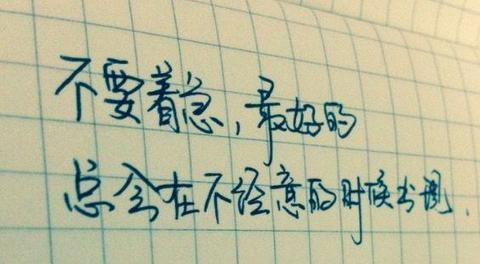 不要着急，最好的
总会在不经意的时候出现.